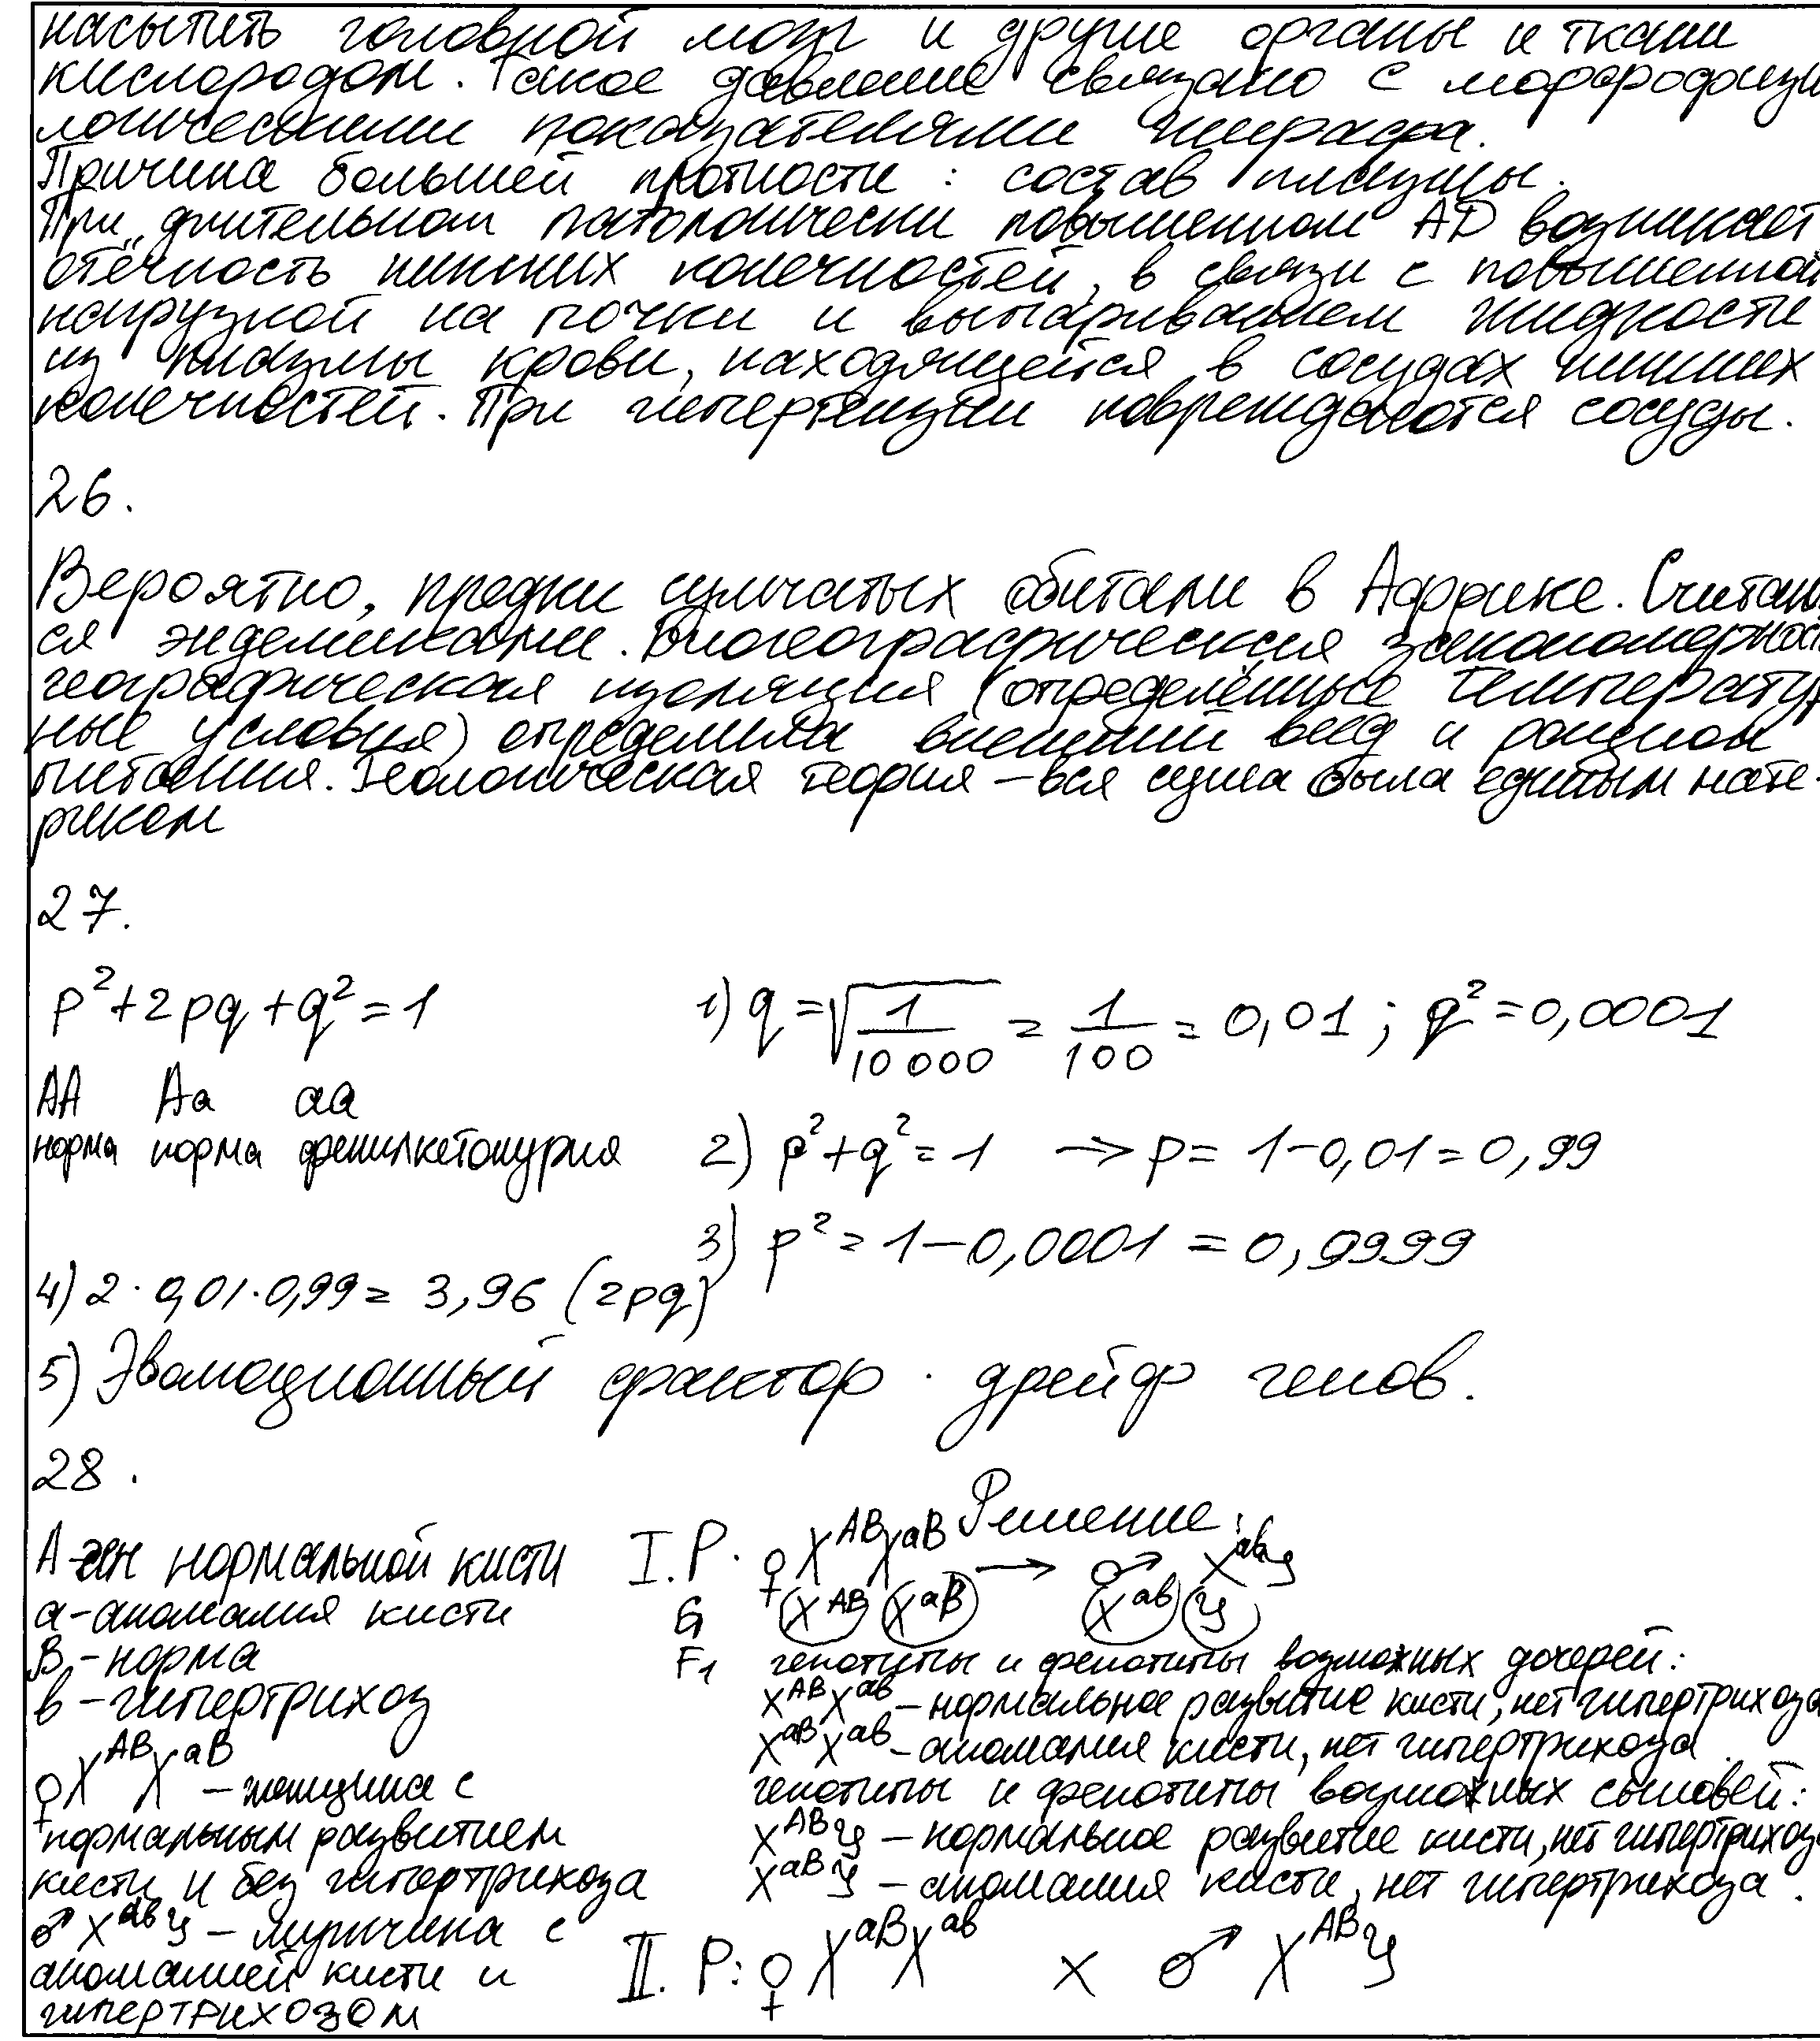 насытить головной мозг и другие органы и ткани
кислородом. Такое давление связано с морфофизи
логическими показателями жирафа.
Причина большей плотности : состав плазмы.
При длительном патологически повышенном АД возникает
отечность нижних конечностей, в связи с повышенной
нагрузкой на почки и выпариванием жидкости
из плазмы крови, находящейся в сосудах нижних
конечностей. При гипертензии повреждаются сосуды.
26.
Вероятно, предки сумчатых обитали в Африке. Считают
ся эндемиками. Биогеографическая закономерност
географическая изоляция (определённые температур
ные условия) определила внешний вид и рацион
питания. Геологическая теория – вся суша была единым мате-
риком
27.
p²+2pq+q²=1
1) q=√1/10 000 = 1/100 = 0,01 ; q²=0,0001
АА Аа аа
норма норма фенилкетонурия
2) p²+q²=1 → p= 1-0,01=0,99
3) p²=1-0,0001 = 0,9999
4) 2·0,01·0,99= 3,96 (2pq)
5) Эволюционный фактор · дрейф генов.
28.
Решение:
А-ген нормальной кисти
а-аномалия кисти
В-норма
в-гипертрихоз
♀X^AB X^aB – женщина с
нормальным развитием
кисти и без гипертрихоза
♂X^ав У – мужчина с
аномалией кисти и
гипертрихозом
I. P. ♀X^AB X^aB → ♂ X^ав У
G X^AB X^aB X^ав У
F1 генотипы и фенотипы возможных дочерей:
X^AB X^ав – нормальное развитие кисти, нет гипертрихоза
X^aB X^ав – аномалия кисти, нет гипертрихоза.
генотипы и фенотипы возможных сыновей:
X^AB У – нормальное развитие кисти, нет гипертрихоза
X^aB У – аномалия кисти, нет гипертрихоза.
II. P: ♀ X^aB X^ав × ♂ X^AB У